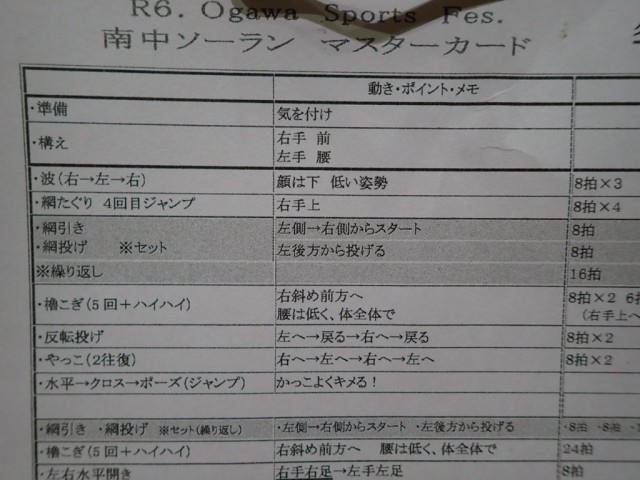 R6. Ogawa Sports Fes.
南中ソーラン マスターカード
動き・ポイント・メモ
・準備 気を付け
・構え 右手 前
左手 腰
・波(右→左→右) 顔は下 低い姿勢 8拍×3
・網たぐり 4回目ジャンプ 右手上 8拍×4
・網引き 左側→右側からスタート 8拍
・網投げ ※セット 左後方から投げる 8拍
※繰り返し 16拍
・櫓こぎ(5回+ハイハイ) 右斜め前方へ 8拍×2
腰は低く、体全体で (右手上へ
・反転投げ 左へ→戻る→右へ→戻る 8拍×2
・やっこ(2往復) 右へ→左へ→右へ→左へ 8拍×2
・水平→クロス→ポーズ(ジャンプ) かっこよくキメる!
・網引き ・網投げ ※セット(繰り返し) ・左側→右側からスタート ・左後方から投げる ・8拍 ・8拍
・櫓こぎ(5回+ハイハイ) 右斜め前方へ 腰は低く、体全体で 24拍
・左右水平開き 右手右足→左手左足 8拍